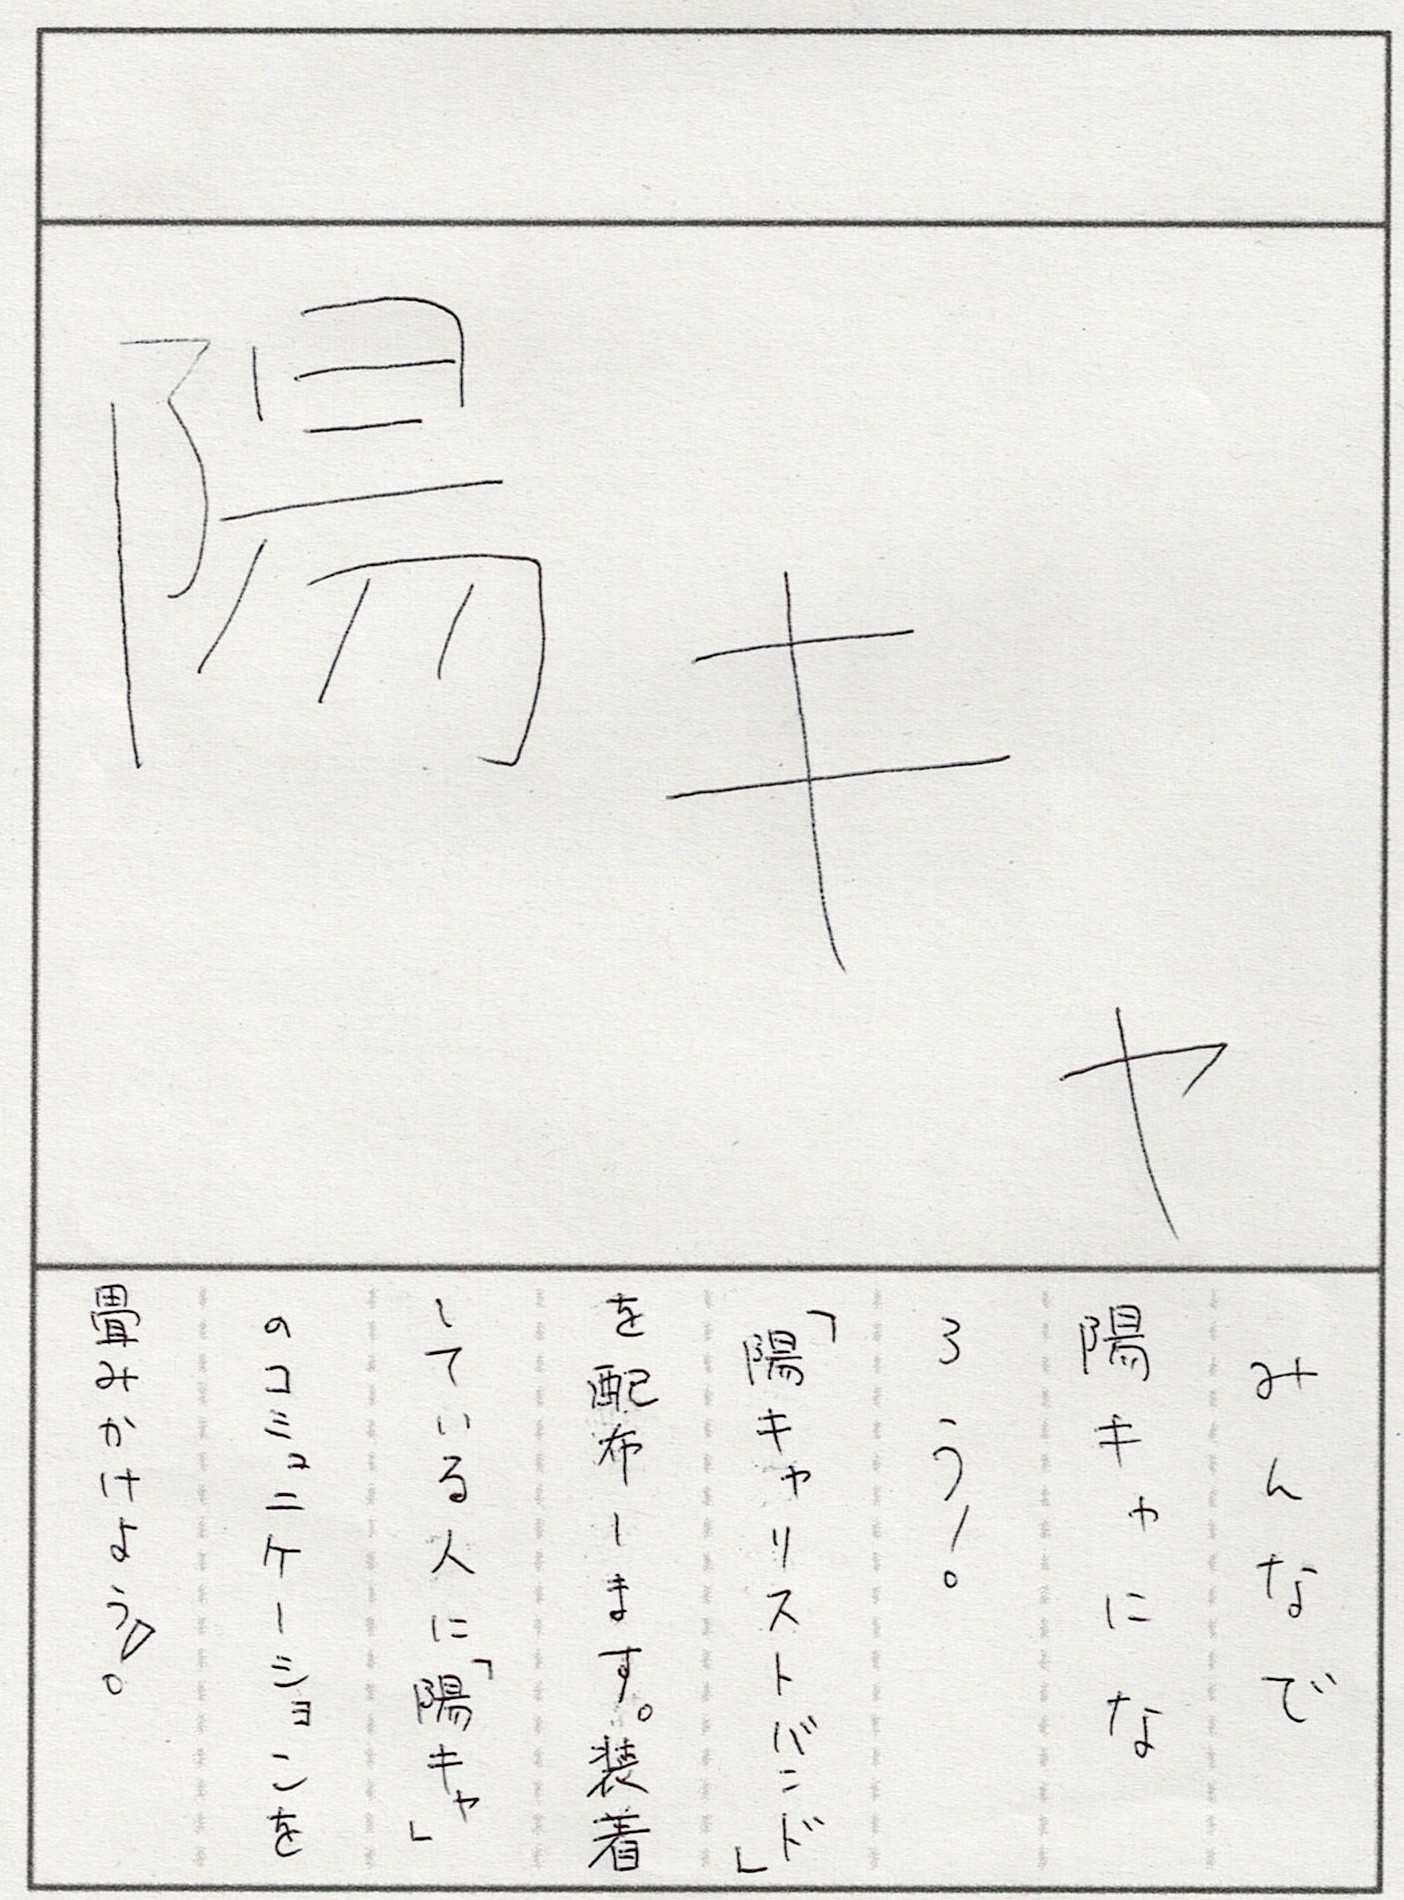 陽キャ
みんなで
陽キャにな
ろう!
「陽キャリストバンド」
を配布します。装着
している人に「陽キャ」
のコミュニケーションを
畳みかけよう!